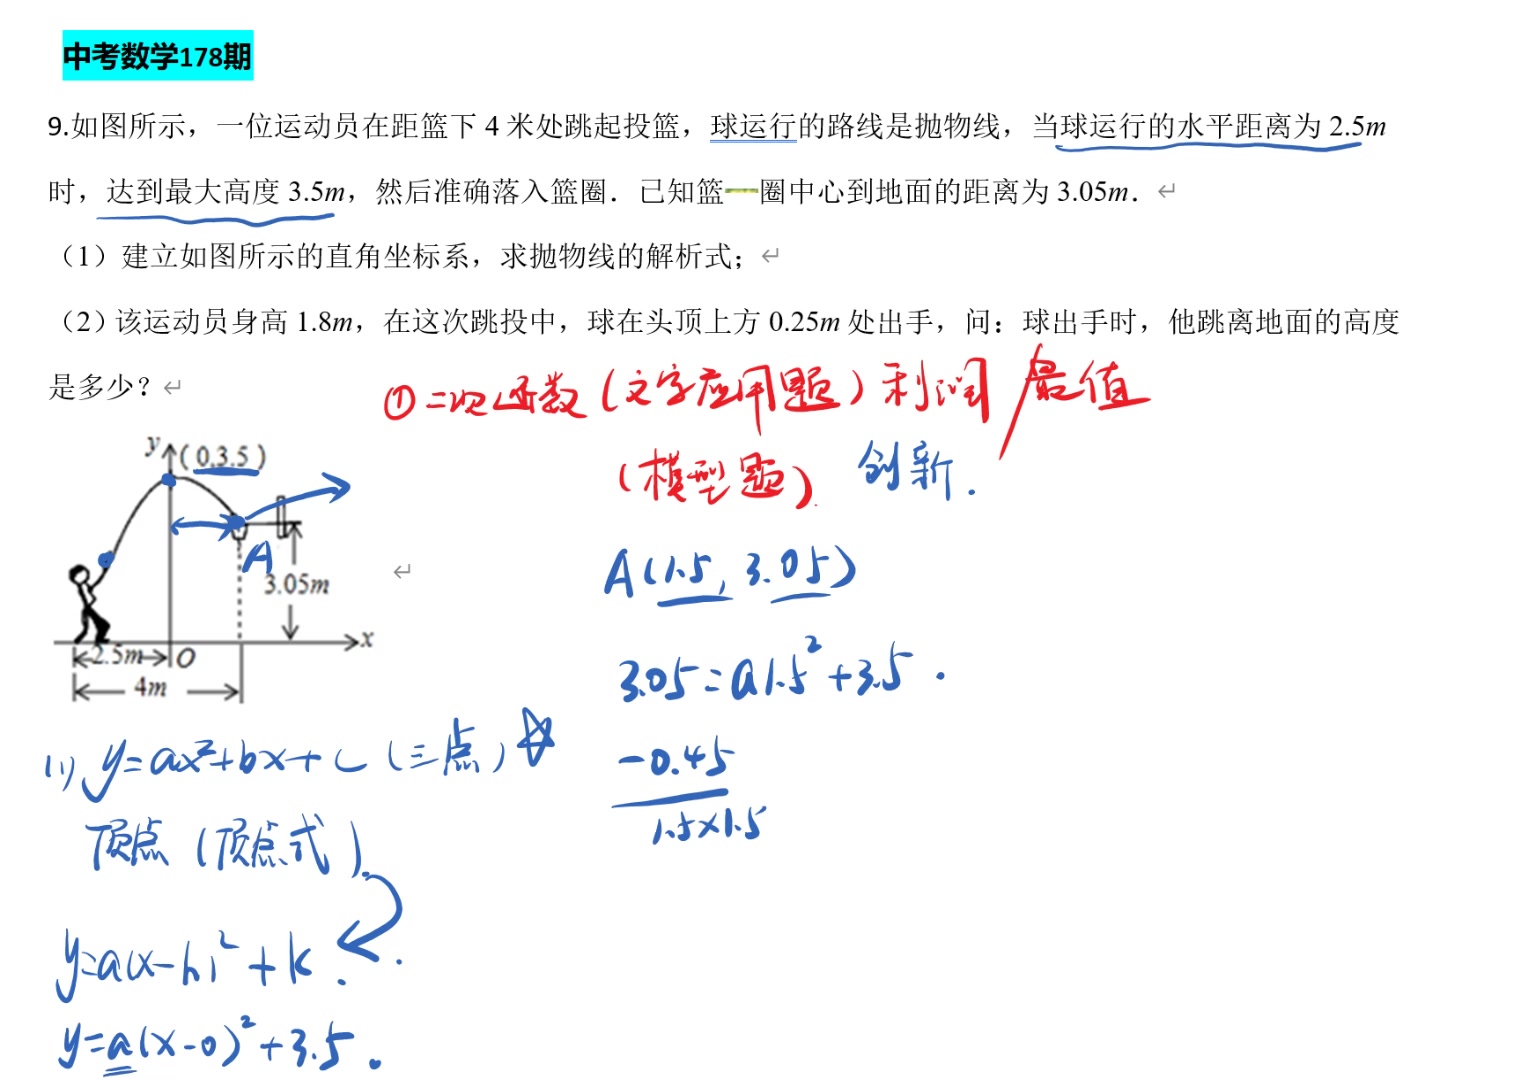 中考数学178期
9.如图所示，一位运动员在距篮下 4 米处跳起投篮，球运行的路线是抛物线，当球运行的水平距离为 2.5m
时，达到最大高度 3.5m，然后准确落入篮圈．已知篮圈中心到地面的距离为 3.05m．
（1）建立如图所示的直角坐标系，求抛物线的解析式；
（2）该运动员身高 1.8m，在这次跳投中，球在头顶上方 0.25m 处出手，问：球出手时，他跳离地面的高度
是多少？
①二次函数（文字应用题）利润/最值
（模型题）创新.
y
(0,3.5)
A
3.05m
x
2.5m
O
4m
A(1.5, 3.05)
3.05=a1.5²+3.5.
-0.45
1.5×1.5
(1) y=ax²+bx+c（三点）☆
顶点（顶点式）
y=a(x-h)²+k.
y=a(x-0)²+3.5.